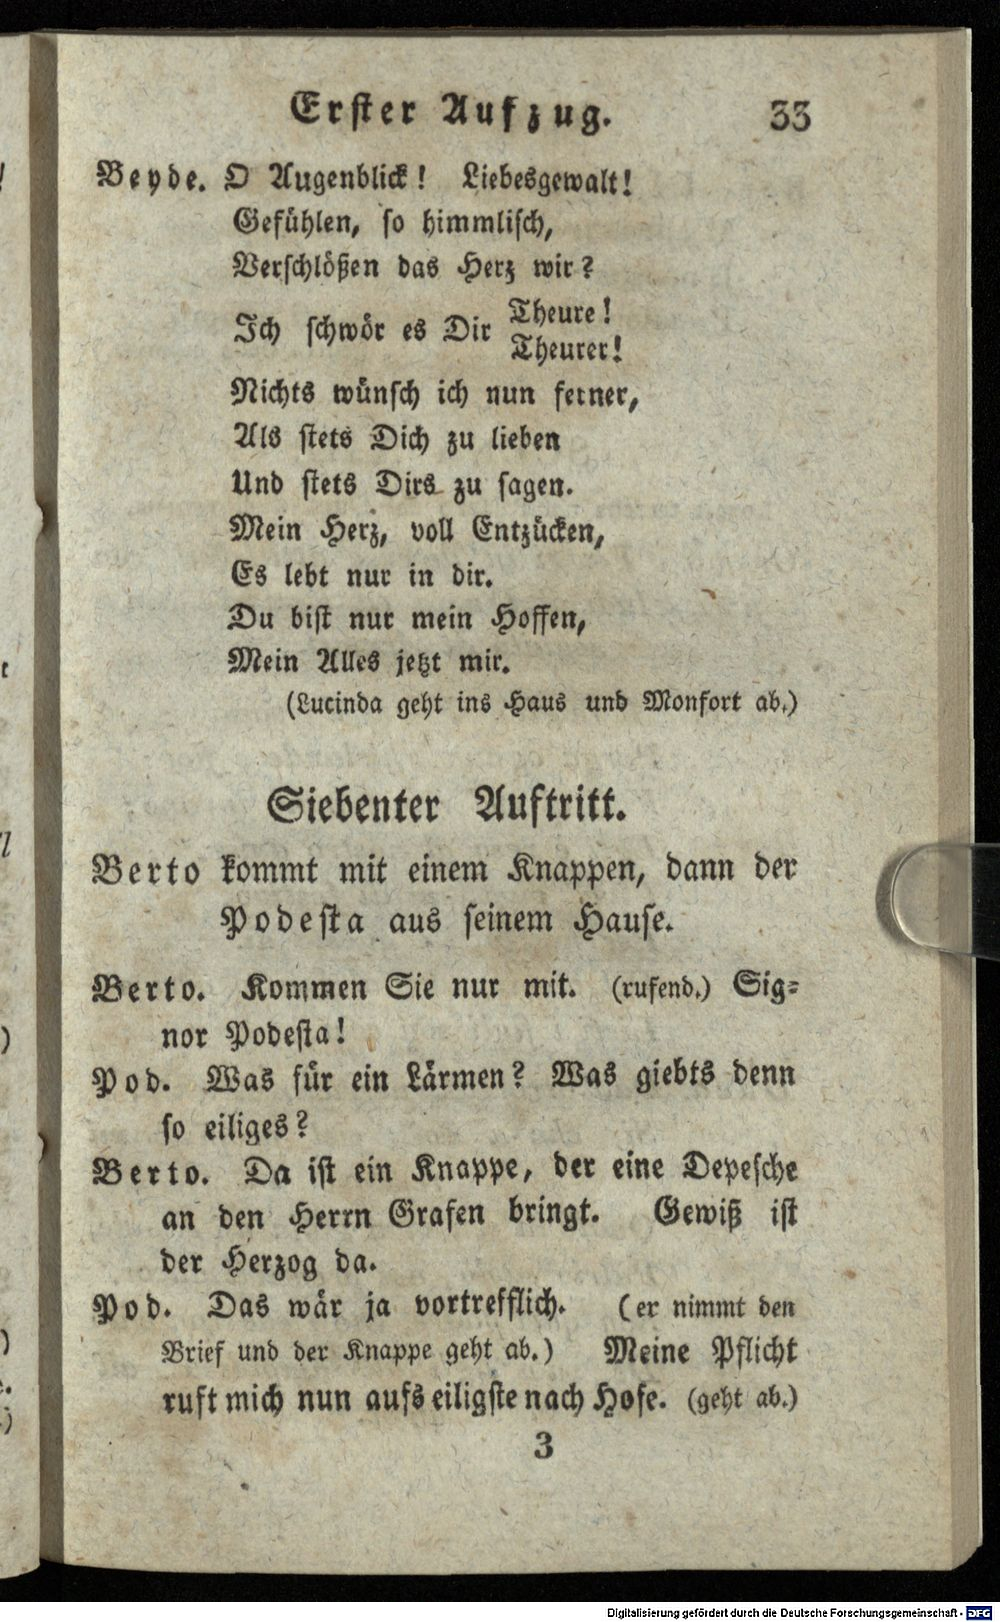 Erster Aufzug. 33
Beyde. O Augenblick! Liebesgewalt!
Gefühlen, so himmlisch,
Verschlößen das Herz wir?
Ich schwör es Dir Theure!
Theurer!
Nichts wünsch ich nun ferner,
Als stets Dich zu lieben
Und stets Dirs zu sagen.
Mein Herz, voll Entzücken,
Es lebt nur in dir.
Du bist nur mein Hoffen,
Mein Alles jetzt mir.
(Lucinda geht ins Haus und Monfort ab.)
Siebenter Auftritt.
Berto kommt mit einem Knappen, dann der
Podesta aus seinem Hause.
Berto. Kommen Sie nur mit. (rufend.) Sig-
nor Podesta!
Pod. Was für ein Lärmen? Was giebts denn
so eiliges?
Berto. Da ist ein Knappe, der eine Depesche
an den Herrn Grafen bringt. Gewiß ist
der Herzog da.
Pod. Das wär ja vortrefflich. (er nimmt den
Brief und der Knappe geht ab.) Meine Pflicht
ruft mich nun aufs eiligste nach Hofe. (geht ab.)
3
Digitalisierung gefördert durch die Deutsche Forschungsgemeinschaft - DFG